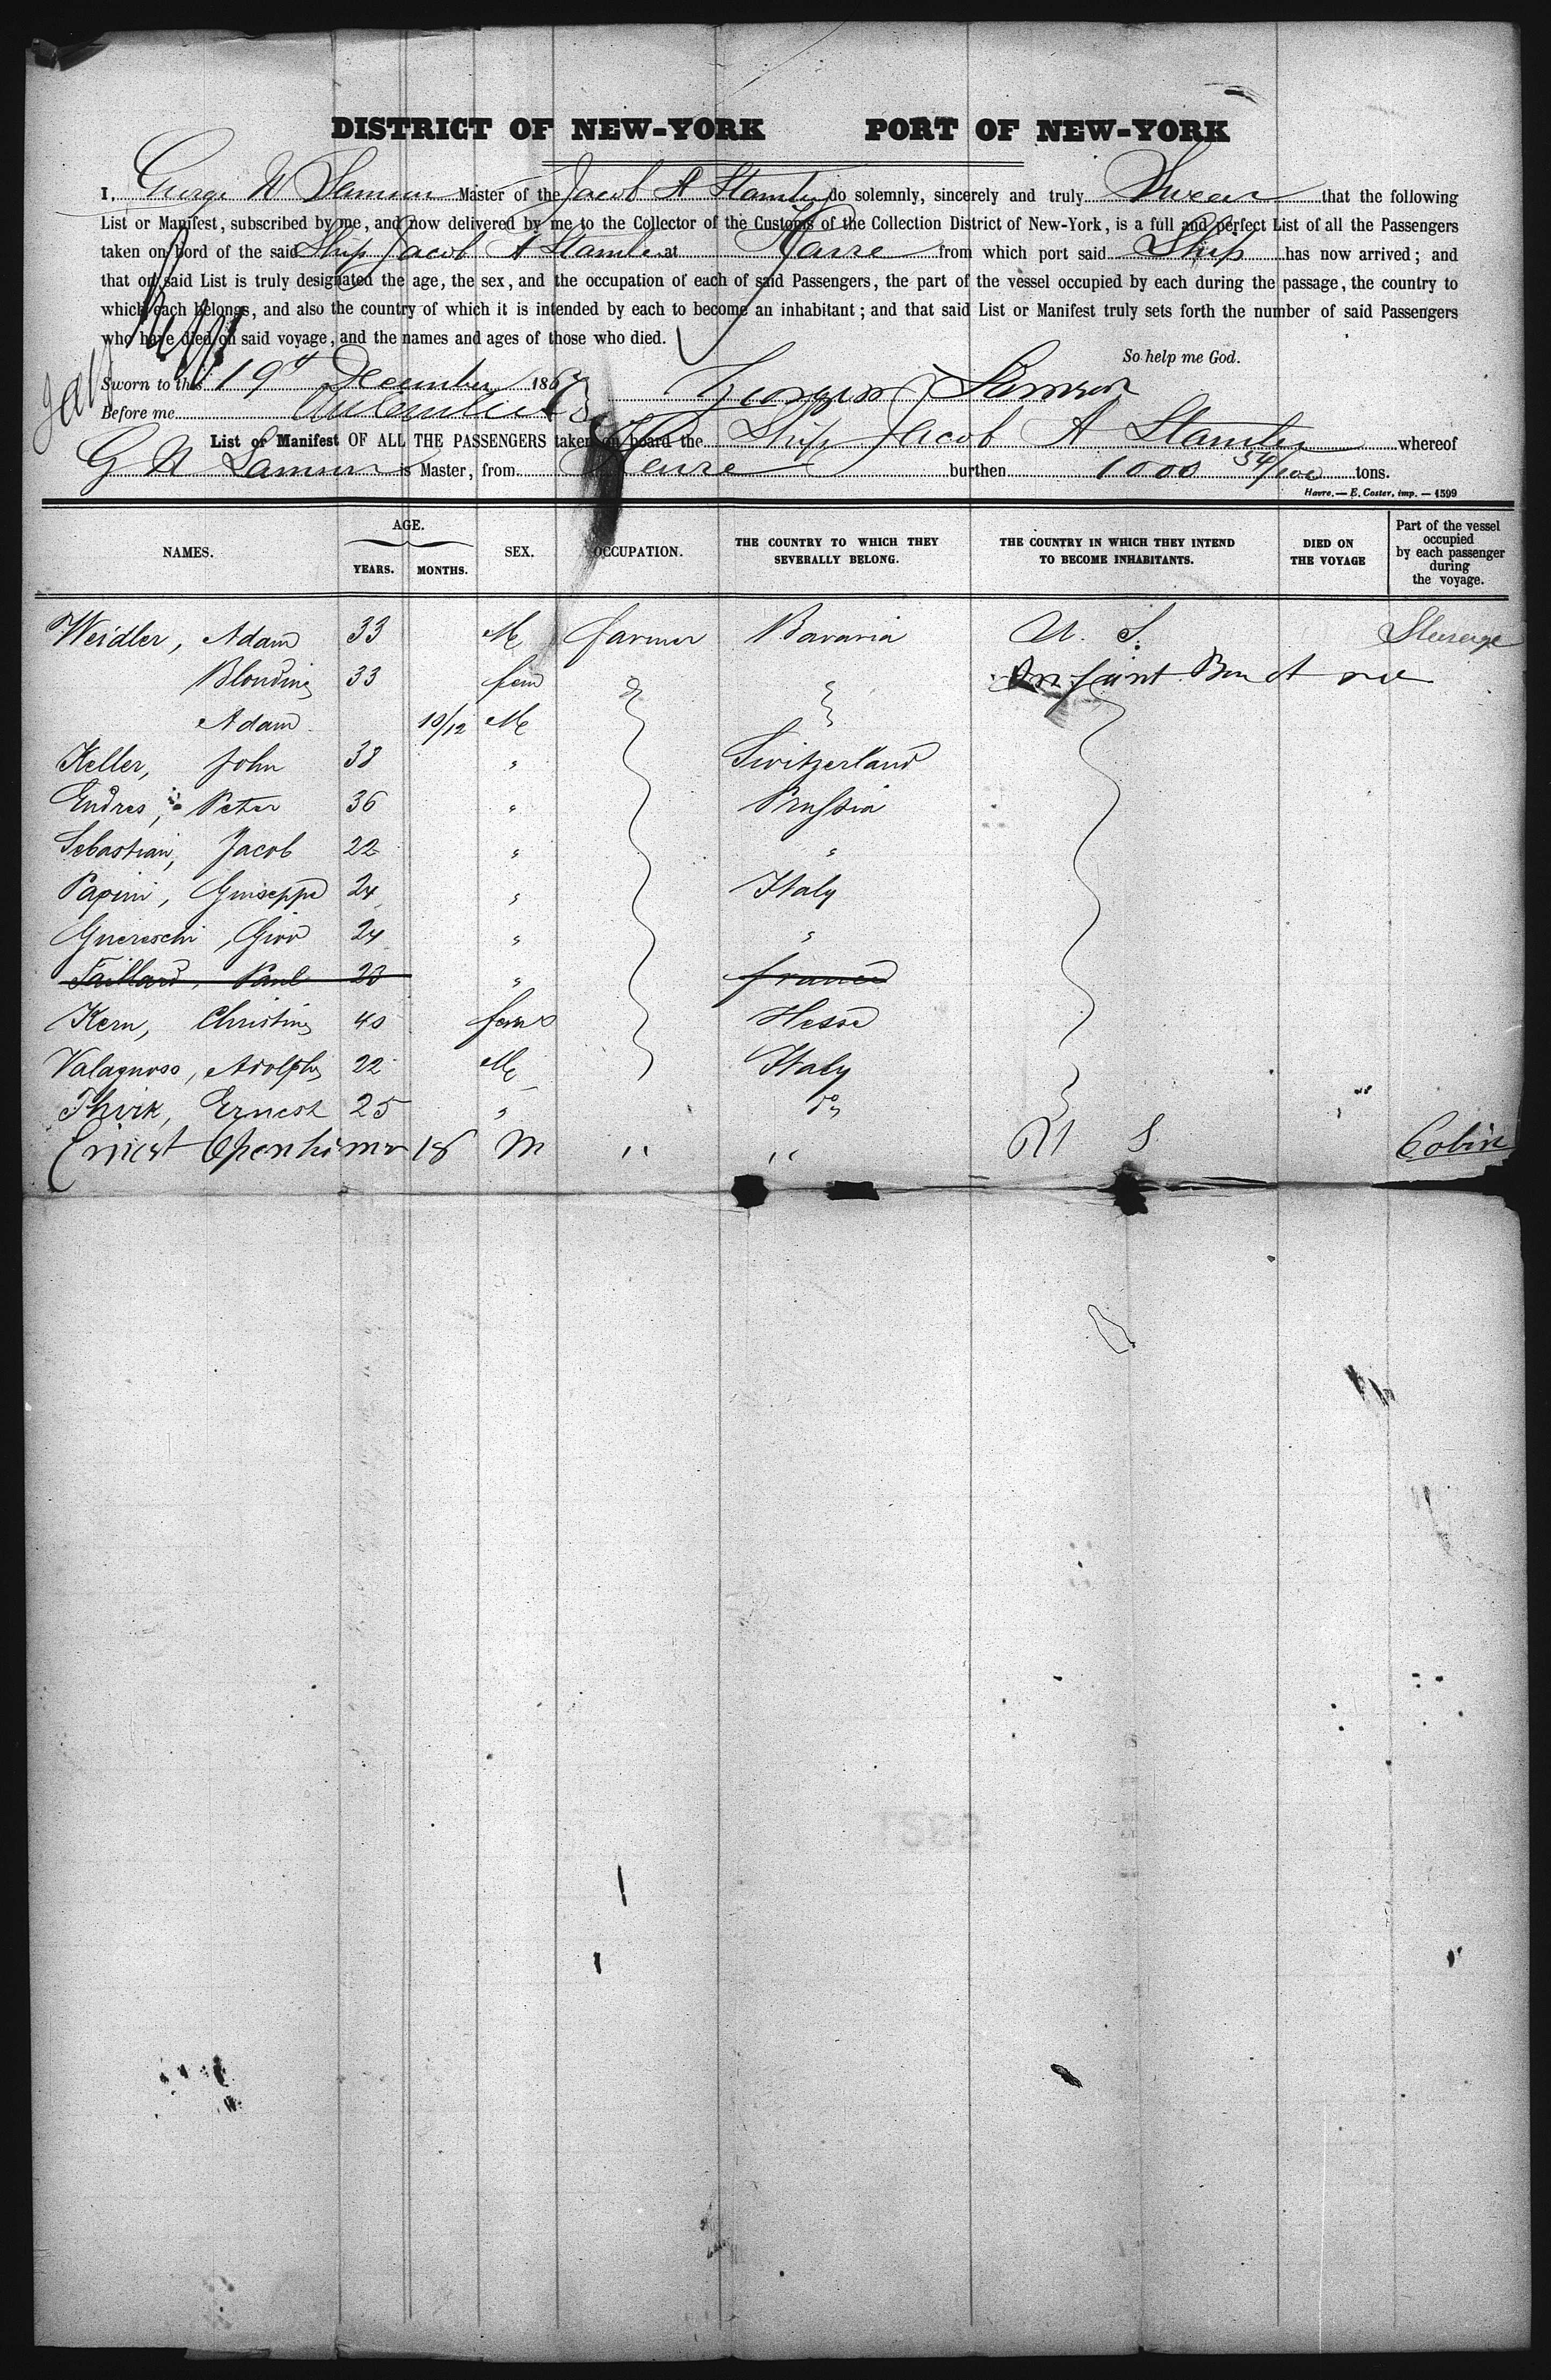 DISTRICT OF NEW-YORK PORT OF NEW-YORK
I, George W Samson Master of the Jacob A Stamler do solemnly, sincerely and truly Swear that the following
List or Manifest, subscribed by me, and now delivered by me to the Collector of the Customs of the Collection District of New-York, is a full and perfect List of all the Passengers
taken on bord of the said Ship Jacob A Stamler at Havre from which port said Ship has now arrived; and
that on said List is truly designated the age, the sex, and the occupation of each of said Passengers, the part of the vessel occupied by each during the passage, the country to
which each belongs, and also the country of which it is intended by each to become an inhabitant; and that said List or Manifest truly sets forth the number of said Passengers
who have died on said voyage, and the names and ages of those who died.
So help me God.
Sworn to this 19 December 186
Before me
George W Samson
List or Manifest OF ALL THE PASSENGERS taken on board the Ship Jacob A Stamler whereof
G W Samson is Master, from Havre burthen 1000 54/100 tons.
Havre. — E. Coster, imp. — 1599
NAMES. AGE. YEARS. MONTHS. SEX. OCCUPATION. THE COUNTRY TO WHICH THEY SEVERALLY BELONG. THE COUNTRY IN WHICH THEY INTEND TO BECOME INHABITANTS. DIED ON THE VOYAGE Part of the vessel occupied by each passenger during the voyage.
Weidler, Adam 33 M farmer Bavaria U. S. Steerage
Blondine 33 fem Infant Born At sea
Adam 10/12 M
Keller, John 38 " Switzerland
Endres, Peter 36 " Prussia
Sebastian, Jacob 22 " "
Papini, Guiseppe 24 " Italy
Guereschi, Giov 24 " "
Taillard, Paul 23 " france
Kern, Christine 40 fem Hesse
Valagnoso, Adolphe 22 M Italy
Thvik, Ernest 25 " do
Ernest Openhimer 18 M " " U S Cabin